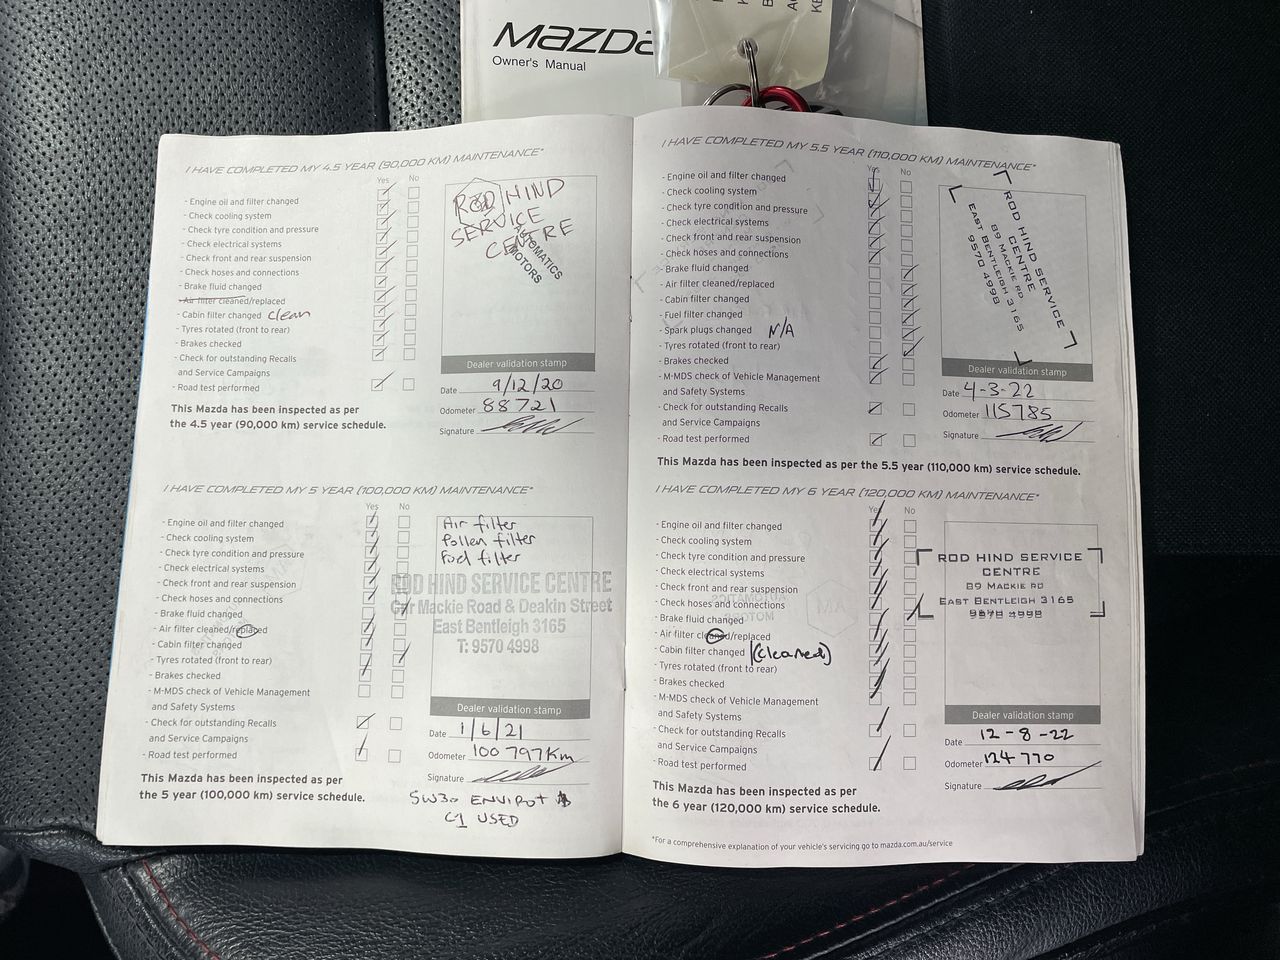 mazda
Owner's Manual
I HAVE COMPLETED MY 4.5 YEAR (90,000 KM) MAINTENANCE*
Yes No
- Engine oil and filter changed
- Check cooling system
- Check tyre condition and pressure
- Check electrical systems
- Check front and rear suspension
- Check hoses and connections
- Brake fluid changed
- Air filter cleaned/replaced
- Cabin filter changed clean
- Tyres rotated (front to rear)
- Brakes checked
- Check for outstanding Recalls
and Service Campaigns
- Road test performed
This Mazda has been inspected as per
the 4.5 year (90,000 km) service schedule.
ROD HIND
SERVICE
CENTRE
AUTOMATICS
MOTORS
Dealer validation stamp
Date 9/12/20
Odometer 88721
Signature
I HAVE COMPLETED MY 5 YEAR (100,000 KM) MAINTENANCE*
Yes No
- Engine oil and filter changed
- Check cooling system
- Check tyre condition and pressure
- Check electrical systems
- Check front and rear suspension
- Check hoses and connections
- Brake fluid changed
- Air filter cleaned/replaced
- Cabin filter changed
- Tyres rotated (front to rear)
- Brakes checked
- M-MDS check of Vehicle Management
and Safety Systems
- Check for outstanding Recalls
and Service Campaigns
- Road test performed
This Mazda has been inspected as per
the 5 year (100,000 km) service schedule.
Air filter
Pollen filter
Fuel filter
ROD HIND SERVICE CENTRE
Cnr Mackie Road & Deakin Street
East Bentleigh 3165
T: 9570 4998
Dealer validation stamp
Date 1/6/21
Odometer 100 797Km
Signature
5W30 ENVIROT
C1 USED
I HAVE COMPLETED MY 5.5 YEAR (110,000 KM) MAINTENANCE*
Yes No
- Engine oil and filter changed
- Check cooling system
- Check tyre condition and pressure
- Check electrical systems
- Check front and rear suspension
- Check hoses and connections
- Brake fluid changed
- Air filter cleaned/replaced
- Cabin filter changed
- Fuel filter changed
- Spark plugs changed N/A
- Tyres rotated (front to rear)
- Brakes checked
- M-MDS check of Vehicle Management
and Safety Systems
- Check for outstanding Recalls
and Service Campaigns
- Road test performed
This Mazda has been inspected as per the 5.5 year (110,000 km) service schedule.
ROD HIND SERVICE
CENTRE
89 MACKIE RD
EAST BENTLEIGH 3165
9570 4998
Dealer validation stamp
Date 4-3-22
Odometer 115785
Signature
I HAVE COMPLETED MY 6 YEAR (120,000 KM) MAINTENANCE*
Yes No
- Engine oil and filter changed
- Check cooling system
- Check tyre condition and pressure
- Check electrical systems
- Check front and rear suspension
- Check hoses and connections
- Brake fluid changed
- Air filter cleaned/replaced
- Cabin filter changed (cleaned)
- Tyres rotated (front to rear)
- Brakes checked
- M-MDS check of Vehicle Management
and Safety Systems
- Check for outstanding Recalls
and Service Campaigns
- Road test performed
This Mazda has been inspected as per
the 6 year (120,000 km) service schedule.
ROD HIND SERVICE
CENTRE
89 MACKIE RD
EAST BENTLEIGH 3165
Dealer validation stamp
Date 12-8-22
Odometer 124770
Signature
*For a comprehensive explanation of your vehicle's servicing go to mazda.com.au/service